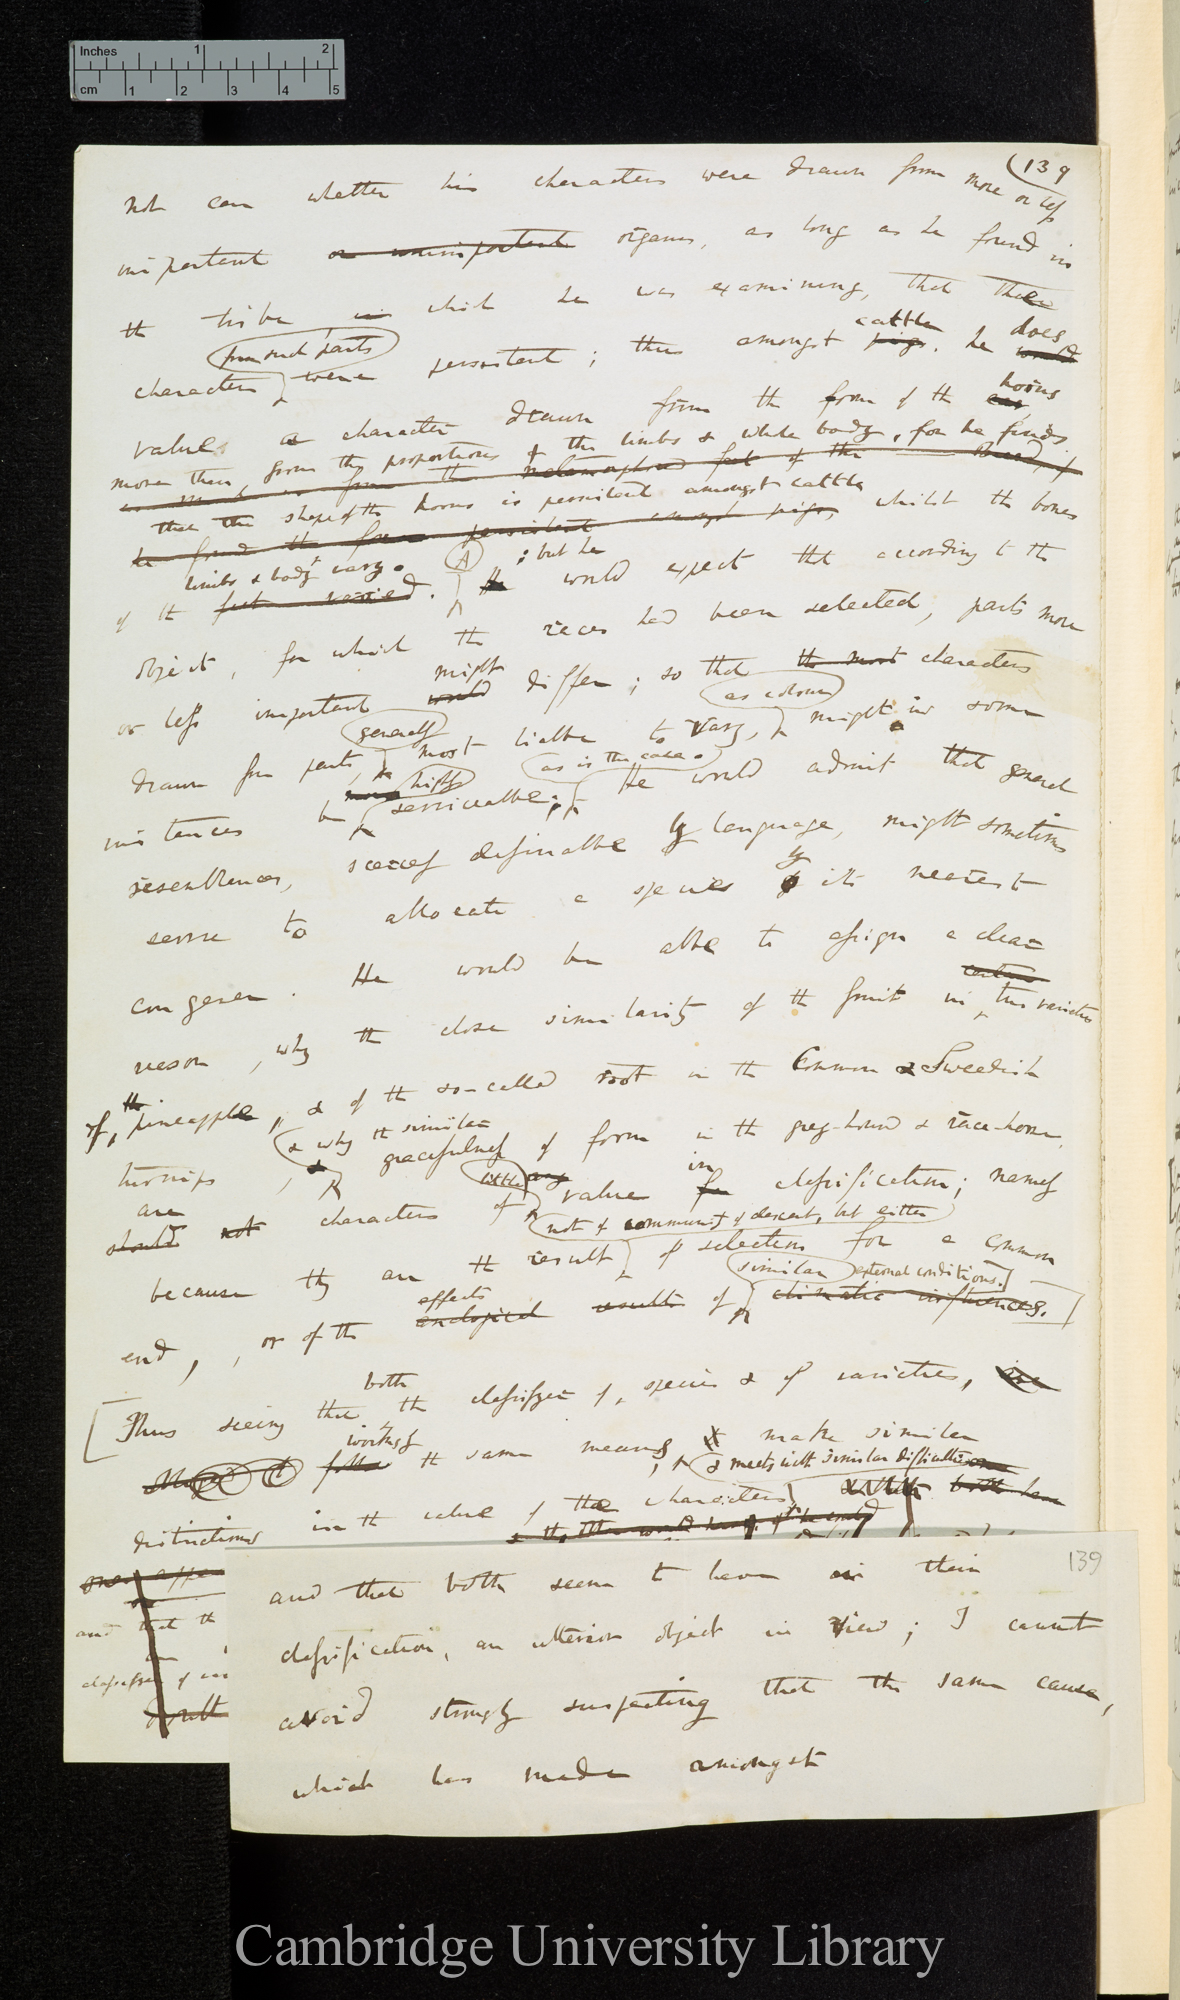 Inches 1 2
cm 1 2 3 4 5
(139
not care whether his characters were drawn from more or less
important or unimportant organs, as long as he found in
the tribe in which he was examining, that these
from such parts
cattle does
characters were persistent; thus amongst pigs, he would
horns
values a character drawn from the form of the ears,
more than from the proportions of the limbs & whole body, for he finds
from the metamorphosed feet of the
that the shape of the horns is persistent amongst cattle
he found the form persistent amongst pigs, whilst the bones
limbs & body vary. (A) ; but he
of the feet varied. He would expect that according to the
object, for which the races had been selected, parts more
might
or less important would differ; so that the most characters
generally (as colour)
drawn from parts, most liable to vary, might in some
highly (as is the case.)
instances be serviceable; He would admit that general
resemblances, scarcely definable by language, might sometimes
by
serve to allocate a species to its nearest
congener. He would be able to assign a clear
certain
reason, why the close similarity of the fruit in two varieties
of the pineapple, & of the so-called root in the Common & Swedish
& why the similar
turnips, & gracefulness of form in the grey-hound & race-horse,
are little any in
should not characters of value for classification; namely
(not of community of descent, but either
because they are the result of selection for a common
effects (similar) external conditions.]
end, or of the analogical results of climatic influences.]
both
[Thus seeing that the classifyer of species & of varieties, are
workingly
follow the same means, & make similar
& meets with similar difficulties
distinctions in the value of the characters both have
and that the
139
and that both seem to have in their
classification, an ulterior object in view; I cannot
avoid strongly suspecting that the same cause,
which has made amongst
Cambridge University Library